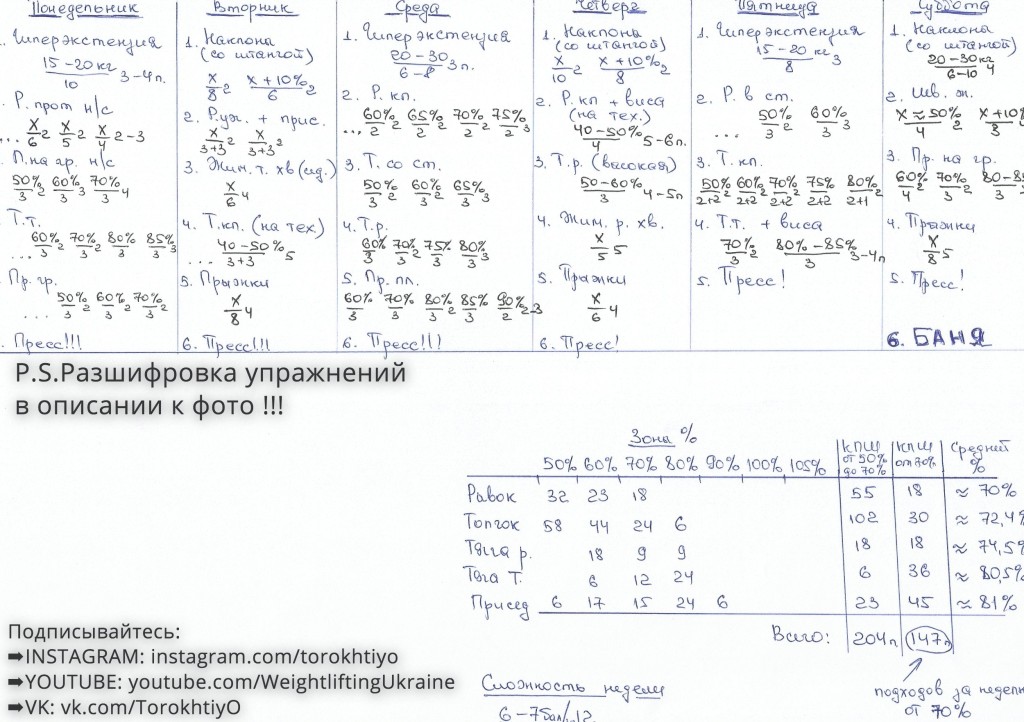 Понедельник
. Гиперэкстензия
15-20кг/10 3-4п.
. Р. прот н/с
... x/6 2 x/5 2 x/4 2-3
. П. на гр. н/с
50%/3 2 60%/3 3 70%/3 4
. Т.т.
... 60%/3 2 70%/3 2 80%/3 3 85%/3 3
. Пр. гр.
... 50%/3 2 60%/3 2 70%/3 2
. Пресс!!!
Вторник
1. Наклона
(со штангой)
x/8 2 x+10%/6 2
2. + прис.
x/3+3 2 x/3+3 2
3. Жим. т. хв (сид.)
x/6 4
4. Т.кп. (на тех.)
40-50%/3+3 5
5. Прыжки
x/8 4
6. Пресс!!!
Среда
1. Гиперэкстензия
20-30/6-8 3п.
2. Р. кп.
... 60%/2 2 65%/2 2 70%/2 2 75%/2 3
3. Т. со ст.
50%/3 2 60%/3 2 65%/3 3
4. Т.р.
60%/3 70%/3 2 75%/3 2 80%/3 3
5. Пр. пл.
60%/3 70%/3 80%/3 2 85%/3 2 90%/2 2-3
6. Пресс!!!
Четверг
1. Наклона
(со штангой)
x/10 2 x+10%/8 2
2. Р. кп + виса
(на тех.)
40-50%/4 5-6п.
3. Т.р. (васокая)
50-60%/3 4-5п
4. Жим. р. хв.
x/5 5
5. Прыжки
x/6 4
6. Пресс!
Пятница
1. Гиперэкстензия
15-20 кг/8 3
2. Р. в ст.
50%/3 2 60%/3 3
3. Т. кп.
50%/2+2 60%/2+2 70%/2+2 75%/2+2 80%/2+1 2
4. Т.т. + виса
70%/3 2 80%-85%/3 3-4п
5. Пресс!
Суббота
1. Наклона
(со штангой)
20-30кг/6-10 4
2. Шв. ж.
x≈50%/4 2 x+10%/8
3. Пр. на гр.
60%/4 2 70%/3 2 80-85/3
4. Прыжки
x/8 5
5. Пресс!
6. БАНЯ
P.S.Разшифровка упражнений
в описании к фото !!!
Зона %
50% 60% 70% 80% 90% 100% 105% КПШ от 50% до 70% КПШ от 70% Средний %
Рывок 32 23 18 55 18 ≈ 70%
Толчок 58 44 24 6 102 30 ≈ 72,4%
Тяга р. 18 9 9 18 18 ≈ 74,5%
Тяга Т. 6 12 24 6 36 ≈ 80,5%
Присед 6 17 15 24 6 23 45 ≈ 81%
Всего: 204п 147п
подходов за неделю
от 70%
Сложность недели
6-7бал/12
Подписывайтесь:
➡INSTAGRAM: instagram.com/torokhtiyo
➡YOUTUBE: youtube.com/WeightliftingUkraine
➡VK: vk.com/TorokhtiyO